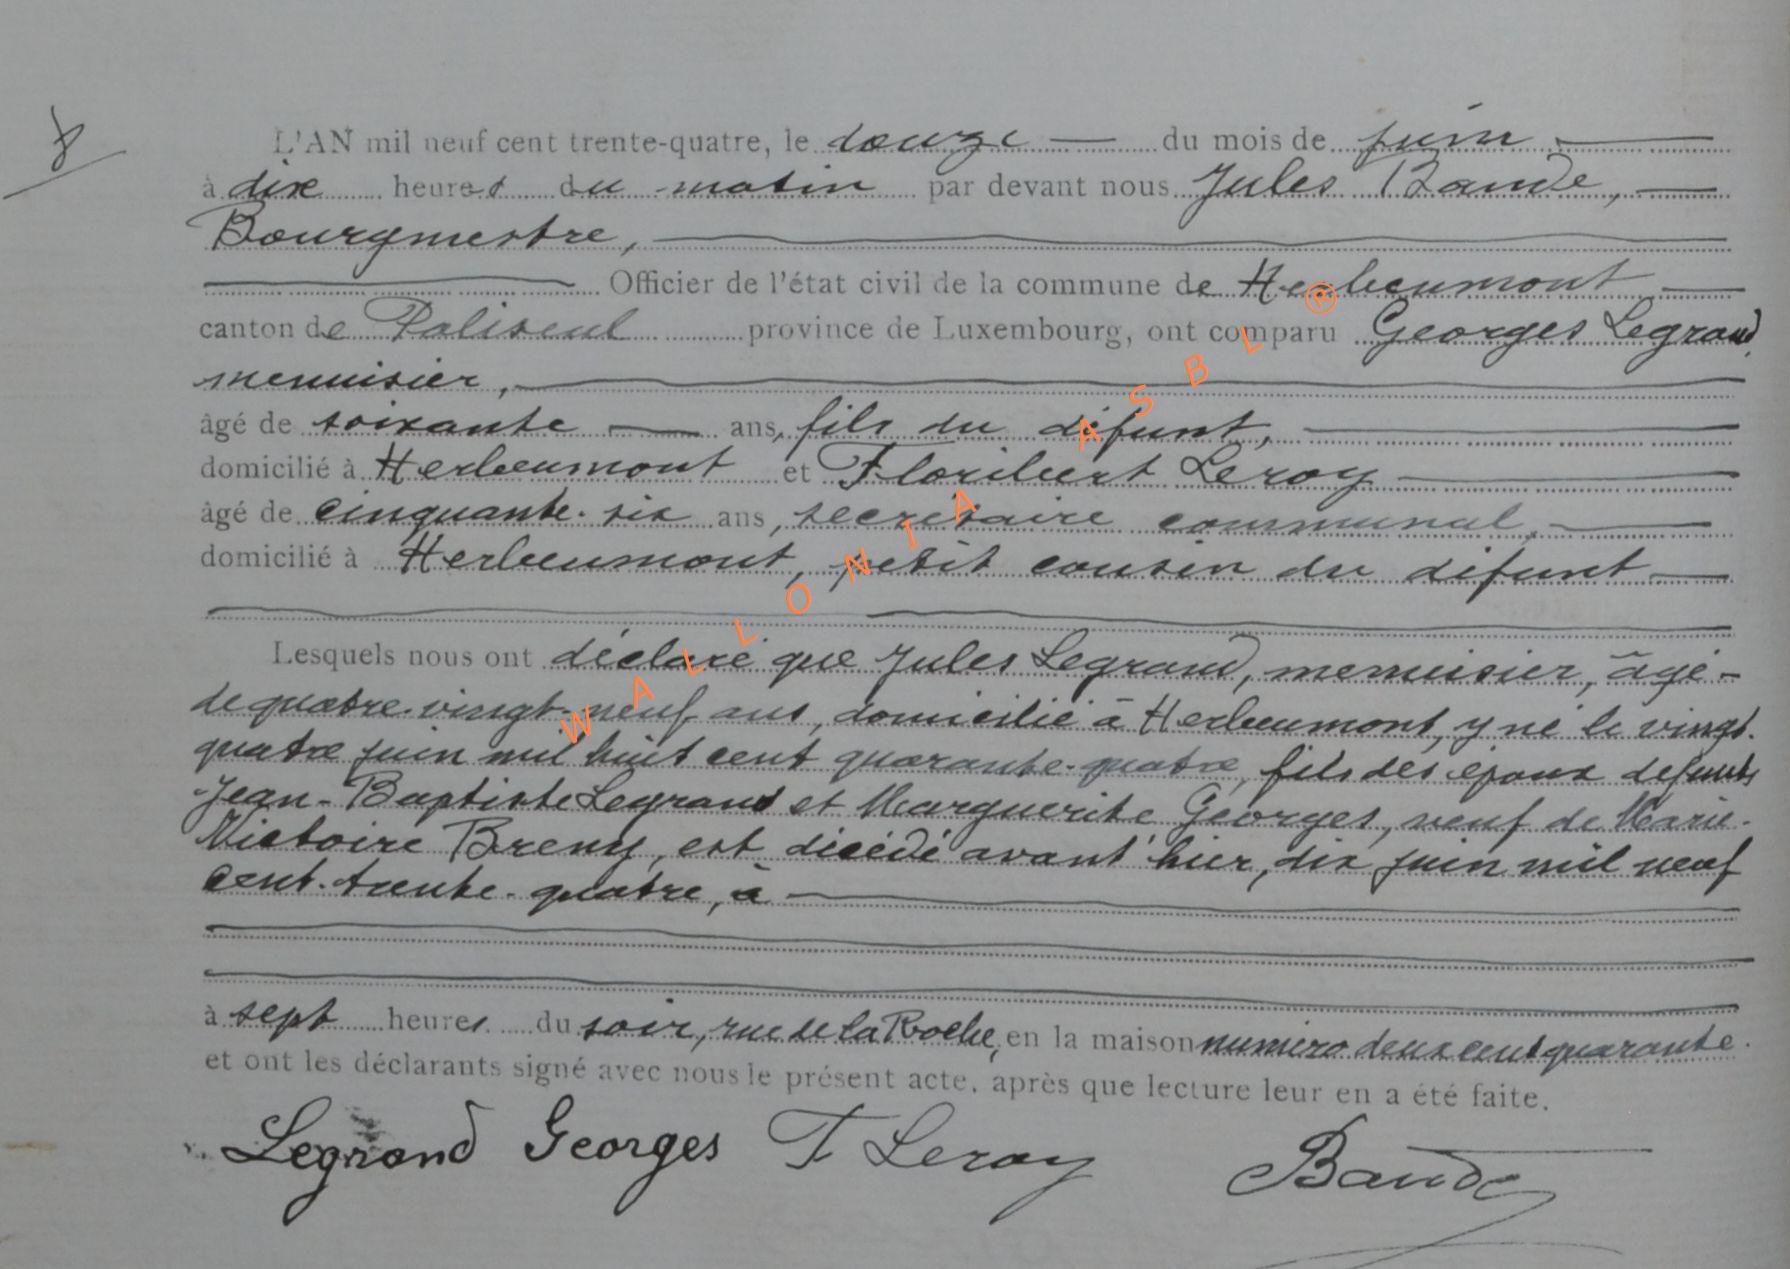 8
L'AN mil neuf cent trente-quatre, le douze du mois de juin
à dix heures du matin par devant nous Jules Baude,
Bourgmestre,
Officier de l'état civil de la commune de Herbeumont
canton de Paliseul province de Luxembourg, ont comparu Georges Legrand,
menuisier,
âgé de soixante ans, fils du défunt,
domicilié à Herbeumont et Floribert Leroy
âgé de cinquante-six ans, secrétaire communal,
domicilié à Herbeumont, petit cousin du défunt
Lesquels nous ont déclaré que Jules Legrand, menuisier, âgé
de quatre-vingt-neuf ans, domicilié à Herbeumont, y né le vingt-
quatre juin mil huit cent quarante-quatre, fils des époux défunts
Jean-Baptiste Legrand et Marguerite Georges, veuf de Marie-
Victoire Breny, est décédé avant hier, dix juin mil neuf
cent-trente-quatre, à
à sept heures du soir, rue de la Roche, en la maison numéro deux cent quarante.
et ont les déclarants signé avec nous le présent acte, après que lecture leur en a été faite.
Legrand Georges F Leroy Baude
WALLONIA ASBL ®